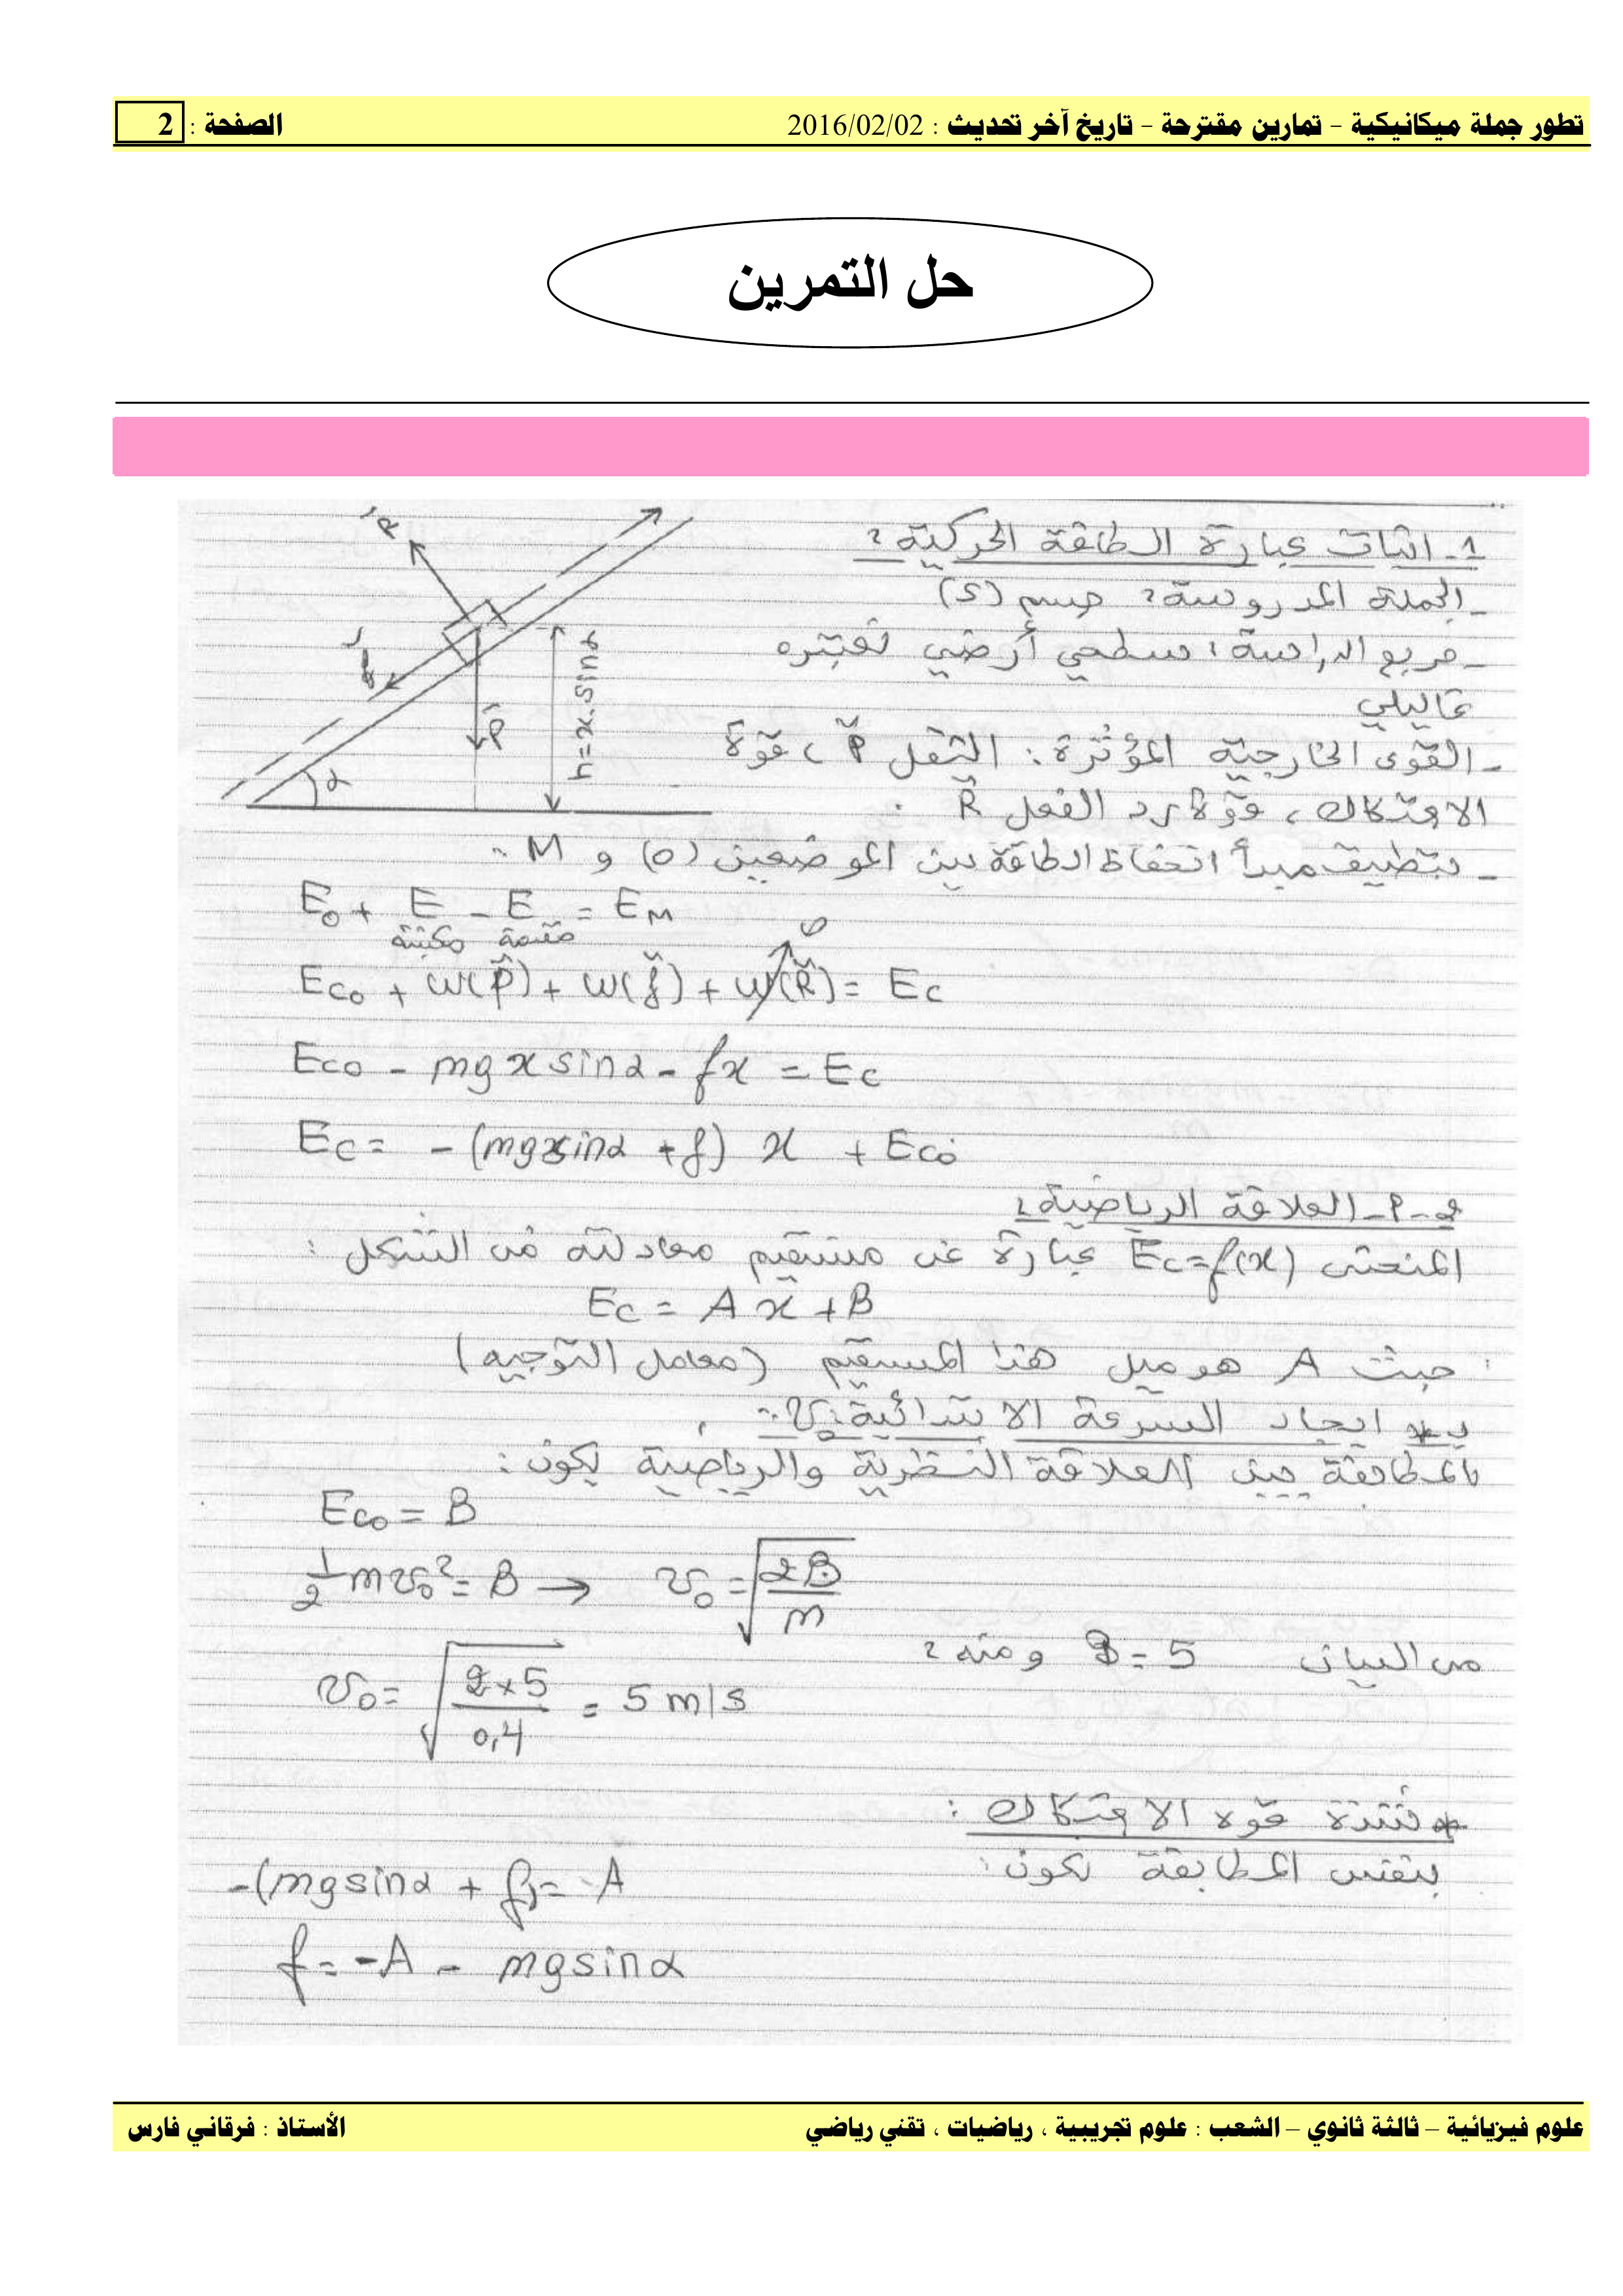 تطور جملة ميكانيكية – تمارين مقترحة – تاريخ آخر تحديث : 2016/02/02 الصفحة : 2
حل التمرين
1- اثبات عبارة الطاقة الحركية :
- الجملة المدروسة : جسم (S)
- مرجع الدراسة : سطحي أرضي نعتبره
غاليلي
- القوى الخارجية المؤثرة : الثقل P ، قوة
الاحتكاك ، قوة رد الفعل R .
- بتطبيق مبدأ انحفاظ الطاقة بين الموضعين (0) و M :
R
f
P
α
h = x.sinα
E0 + E مكتسبة - E مقدمة = EM
Ec0 + W(P) + W(f) + W(R) = Ec
0
Ec0 - mg x sinα - fx = Ec
Ec = - (mgxsinα + f) x + Ec0
2- P- العلاقة الرياضية :
المنحنى Ec=f(x) عبارة عن مستقيم معادلته من الشكل :
Ec = A x + B
حيث A هو ميل هذا المستقيم (معامل التوجيه)
ب * ايجاد السرعة الابتدائية v0 :
بالمطابقة بين العلاقة النظرية والرياضية يكون :
Ec0 = B
1/2 mv0² = B → v0 = √(2B/m)
من البيان B = 5 ومنه :
v0 = √(2×5/0,4) = 5 m/s
* شدة قوة الاحتكاك :
بنفس المطابقة يكون :
-(mgsinα + f) = A
f = -A - mgsinα
علوم فيزيائية – ثالثة ثانوي – الشعب : علوم تجريبية ، رياضيات ، تقني رياضي الأستاذ : فرقاني فارس